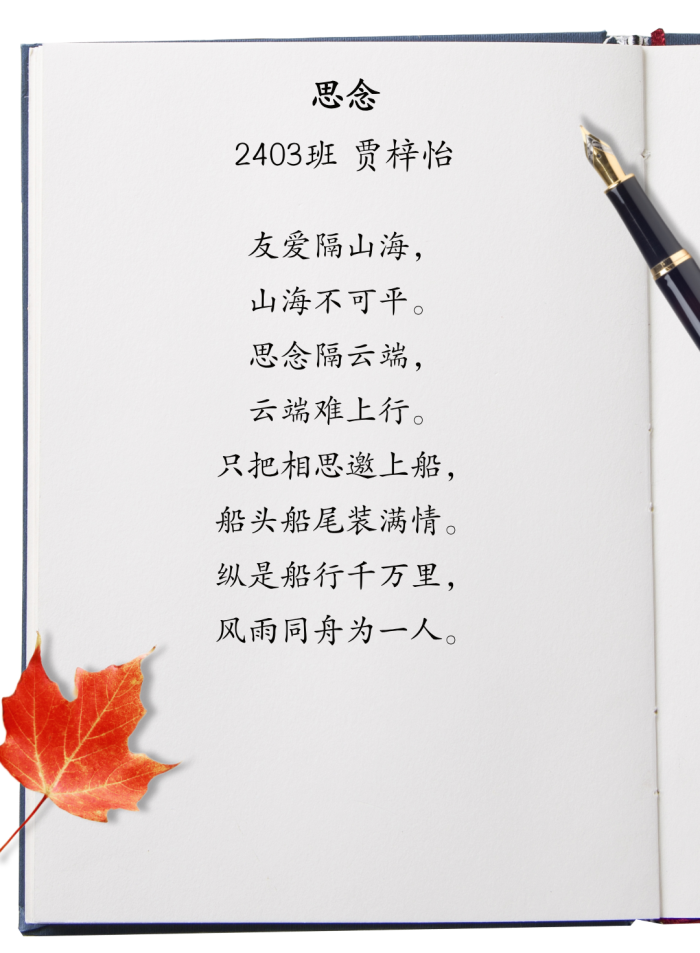 思念
2403班 贾梓怡
友爱隔山海，
山海不可平。
思念隔云端，
云端难上行。
只把相思邀上船，
船头船尾装满情。
纵是船行千万里，
风雨同舟为一人。